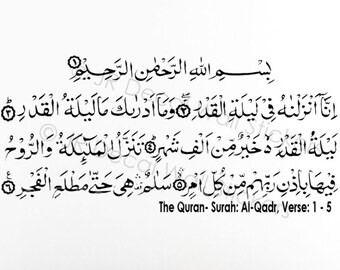 بِسْمِ اللهِ الرَّحْمٰنِ الرَّحِيْمِ ۝١
اِنَّاۤ اَنْزَلْنٰهُ فِيْ لَيْلَةِ الْقَدْرِ ۝٢ وَمَاۤ اَدْرٰىكَ مَا لَيْلَةُ الْقَدْرِ ۝٣
لَيْلَةُ الْقَدْرِ ذ خَيْرٌ مِّنْ اَلْفِ شَهْرٍ ۝٤ تَنَزَّلُ الْمَلٰٓئِكَةُ وَالرُّوْحُ
فِيْهَا بِاِذْنِ رَبِّهِمْ مِّنْ كُلِّ اَمْرٍ ۝٥ سَلٰمٌ ۛ هِيَ حَتّٰى مَطْلَعِ الْفَجْرِ ۝٦ ع
The Quran- Surah: Al-Qadr, Verse: 1 - 5